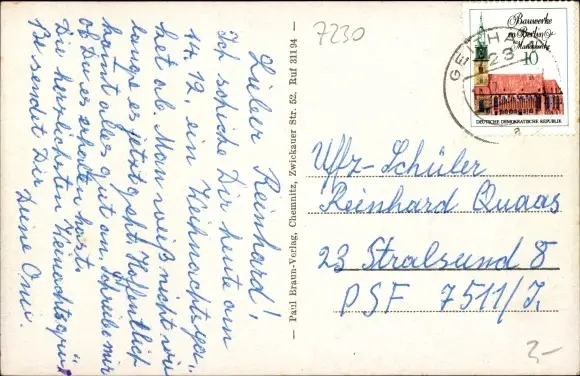 Lieber Reinhard!
Ich schicke Dir heute am
14. 12. ein Weihnachtspa-
ket ab. Man weiß nicht wie
lange es jetzt geht. Hoffentlich
kommt alles gut an. Schreibe mir
ob Du es erhalten hast.
Die herzlichsten Weinachtsgrüß
sendet Dir
Deine Omi.
— Paul Braun-Verlag, Chemnitz, Zwickauer Str. 52. Ruf 31194 —
7230
Bauwerke
in Berlin
Marienkirche
10
DEUTSCHE DEMOKRATISCHE REPUBLIK
GEITHAIN
23
a
Uffz-Schüler
Reinhard Quaas
23 Stralsund 8
PSF 7511/J.
3-